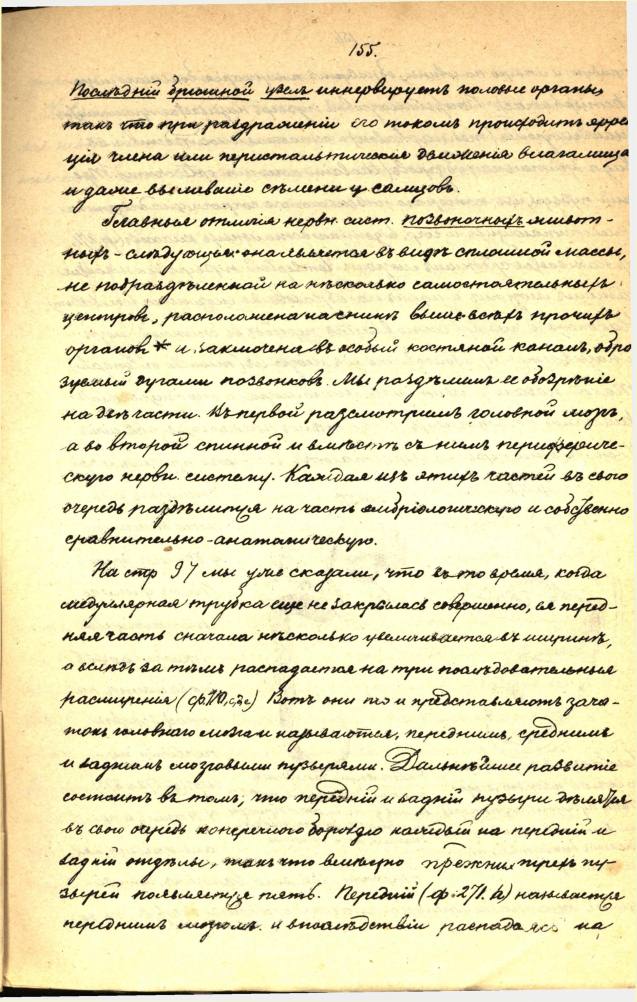 155.
Послѣдній брюшной узелъ иннервируетъ половые органы,
такъ что при раздраженіи его токомъ происходитъ эрек
ція члена или перистальтическія движенія влагалища
и даже выливаніе сѣмени у самцовъ.
Главныя отличія нервн. сист. позвоночныхъ живот-
ныхъ - слѣдующія: она является въ видѣ сплошной массы,
не подраздѣленной на нѣсколько самостоятельныхъ
центровъ, расположена на спинѣ выше всѣхъ прочихъ
органовъ * и заключена въ особый костяной каналъ, обра
зуемый дугами позвонковъ. Мы раздѣлимъ ее обозрѣніе
на двѣ части. Въ первой разсмотримъ головной мозгъ,
а во второй спинной и вмѣстѣ съ нимъ периферите-
скую нервн. систему. Каждая изъ этихъ частей въ свою
очередь раздѣлится на часть эмбріологическую и собственно
сравнительно-анатомическую.
На стр 97 мы уже сказали, что въ то время, когда
медуллярная трубка еще не закрылась совершенно, ея перед-
няя часть сначала нѣсколько увеличивается въ ширинѣ,
а вслѣдъ за тѣмъ распадается на три послѣдовательныя
расширенія Вотъ они то и представляютъ зача-
токъ головнаго мозга и называются, переднимъ, среднимъ
и заднимъ мозговыми пузырями. Дальнѣйшее развитіе
состоитъ въ томъ, что передній и задній пузыри дѣлятся
въ свою очередь поперечною бороздою каждый на передній и
задній отдѣлы, такъ что вмѣсто прежнихъ трехъ пу-
зырей появляется пять. Передній (ф. 271. h) называется
переднимъ мозгомъ и впослѣдствіи распадаясь на